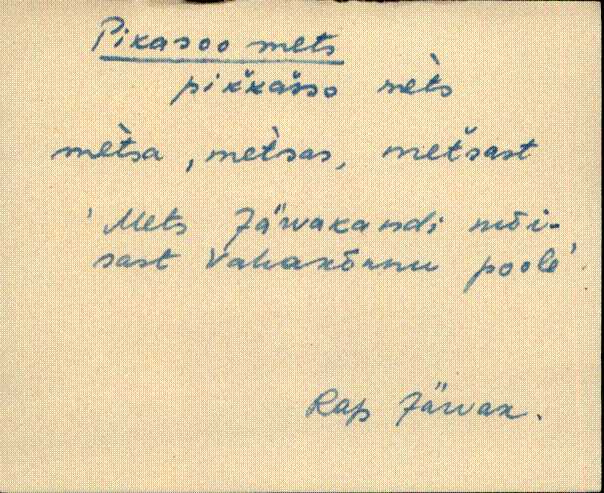 Pikasoo mets
pikkasso mèts
mètsa, mètsas, metsast
'Mets Järvakandi mõi-
sast Vahakõnnu poole'.
Rap Järvak.